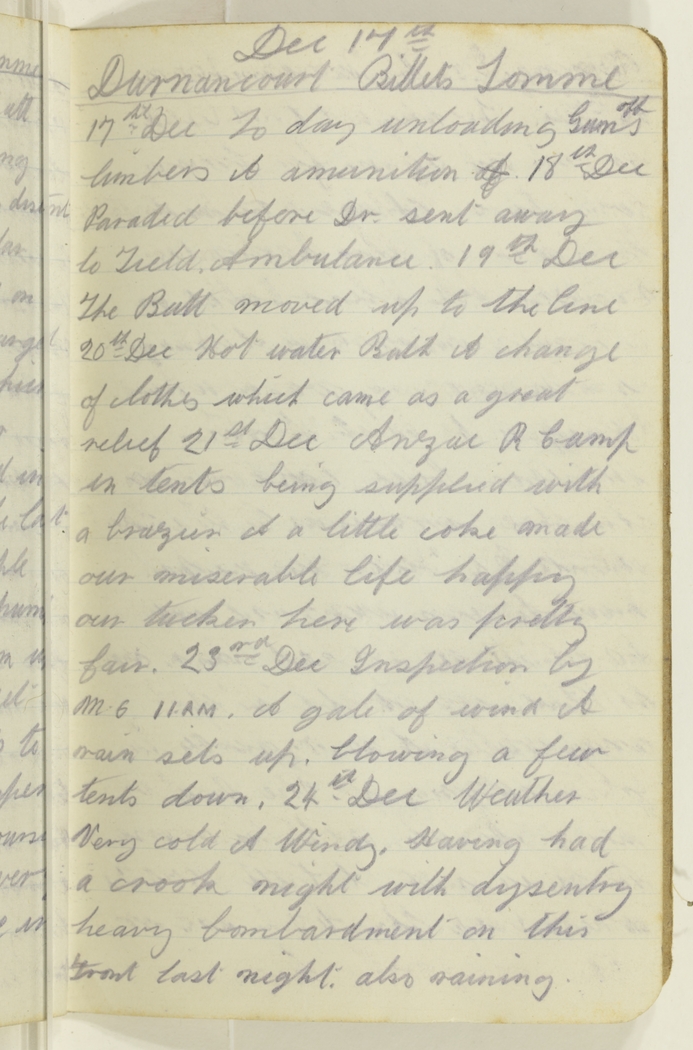 Dec 17th
Durnancourt Billets Somme
17th Dec To day unloading Guns off
limbers & amunition &c. 18th Dec
Paraded before Dr. sent away
to Field. Ambulance. 19th Dec
The Batt moved up to the line
20th Dec Hot water Bath & change
of clothes which came as a great
relief 21st Dec Anzac R Camp
in tents being supplied with
a brazier & a little coke made
our miserable life happy
our tucker here was pretty
fair. 23rd Dec Inspection by
M-G 11.AM. A gale of wind &
rain sets up. blowing a few
tents down. 24th Dec Weather
Very cold & Windy. Having had
a crook night with dysentry
heavy bombardment on this
front last night. also raining.